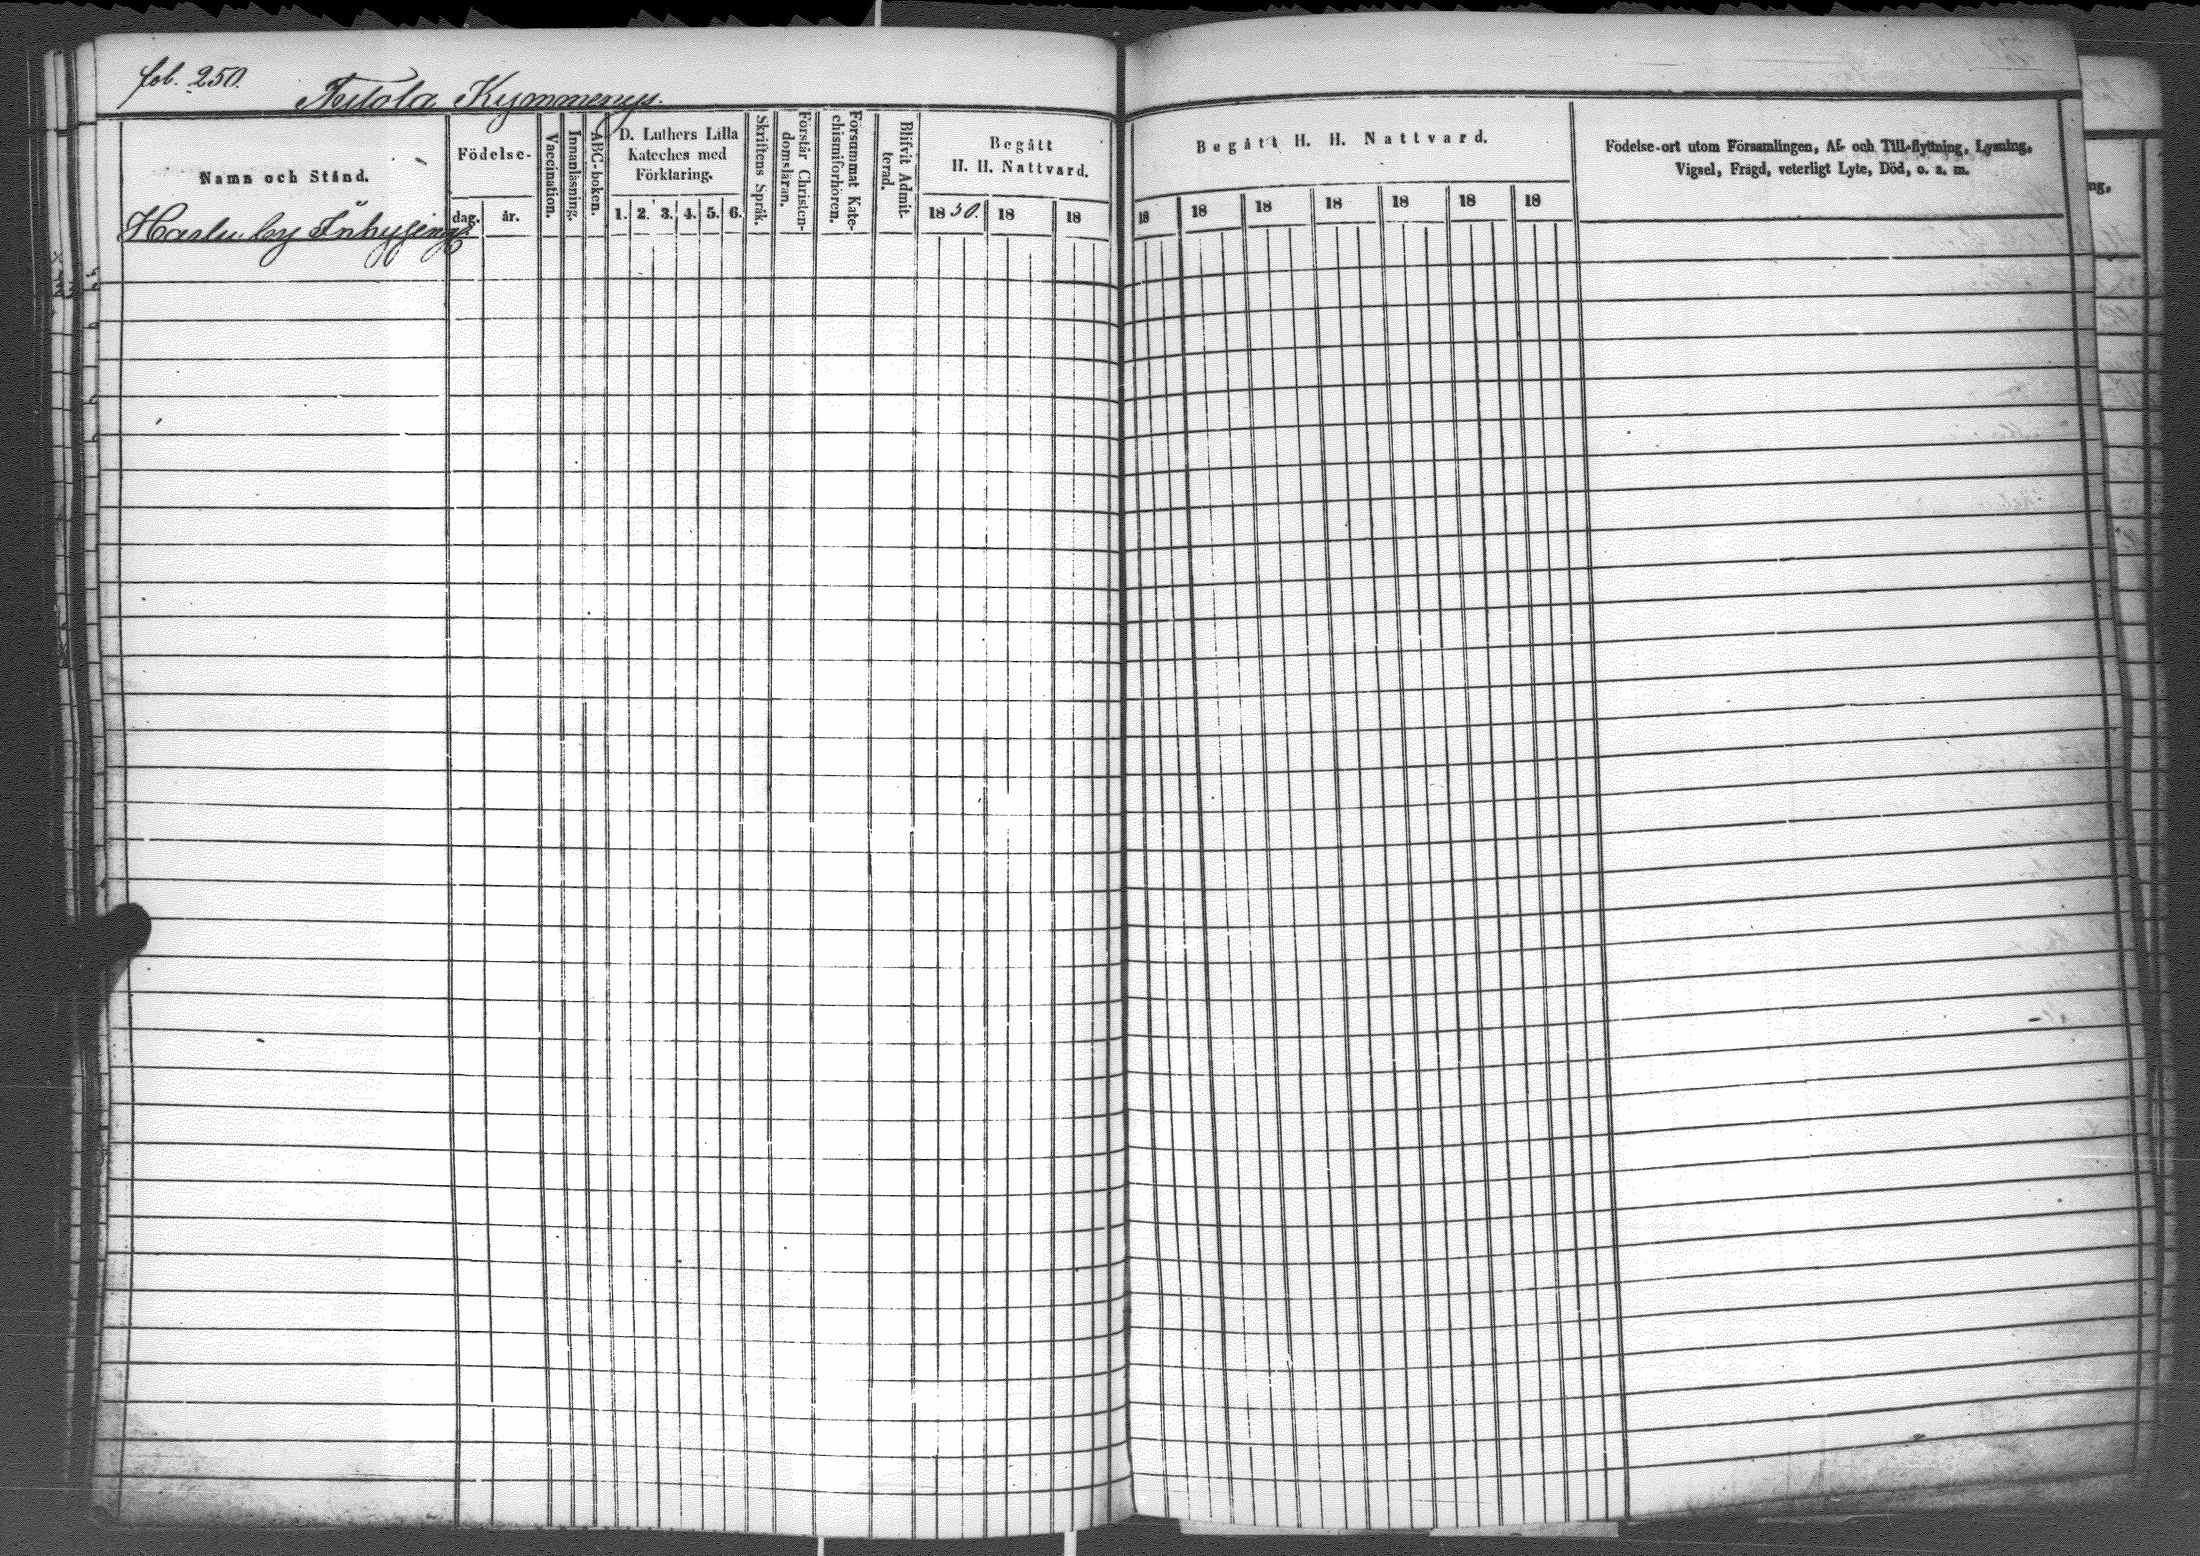 fol. 250.
Kymmenegs.
Namn och Stånd.
Födelse-
dag. år.
Vaccination.
Innanläsning.
ABC-boken.
D. Luthers Lilla
Kateches med
Förklaring.
1. 2. 3. 4. 5. 6.
Skriftens Språk.
Förstår Christen-
domsläran.
Försummat Kate-
chismiförhören.
Blifvit Admit-
terad.
Begått
H. H. Nattvard.
1850. 18 18
by Inhysingar
Begått H. H. Nattvard.
18 18 18 18 18 18 18
Födelse-ort utom Församlingen, Af- och Till-flyttning, Lysning,
Vigsel, Frägd, veterligt Lyte, Död, o. s. m.
ng,